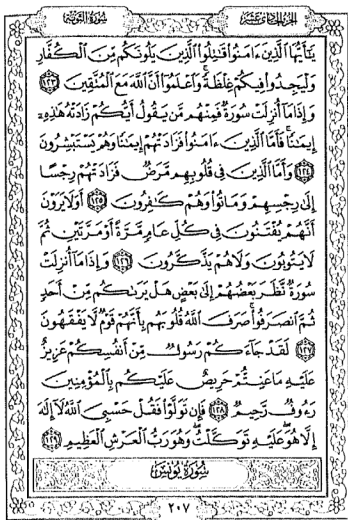 سورة التوبة
الجزء الحادي عشر
يَٰٓأَيُّهَا ٱلَّذِينَ ءَامَنُوا۟ قَٰتِلُوا۟ ٱلَّذِينَ يَلُونَكُم مِّنَ ٱلْكُفَّارِ
وَلْيَجِدُوا۟ فِيكُمْ غِلْظَةً وَٱعْلَمُوٓا۟ أَنَّ ٱللَّهَ مَعَ ٱلْمُتَّقِينَ ١٢٣
وَإِذَا مَآ أُنزِلَتْ سُورَةٌ فَمِنْهُم مَّن يَقُولُ أَيُّكُمْ زَادَتْهُ هَٰذِهِۦٓ
إِيمَٰنًا فَأَمَّا ٱلَّذِينَ ءَامَنُوا۟ فَزَادَتْهُمْ إِيمَٰنًا وَهُمْ يَسْتَبْشِرُونَ
١٢٤ وَأَمَّا ٱلَّذِينَ فِى قُلُوبِهِم مَّرَضٌ فَزَادَتْهُمْ رِجْسًا
إِلَىٰ رِجْسِهِمْ وَمَاتُوا۟ وَهُمْ كَٰفِرُونَ ١٢٥ أَوَلَا يَرَوْنَ
أَنَّهُمْ يُفْتَنُونَ فِى كُلِّ عَامٍ مَّرَّةً أَوْ مَرَّتَيْنِ ثُمَّ
لَا يَتُوبُونَ وَلَا هُمْ يَذَّكَّرُونَ ١٢٦ وَإِذَا مَآ أُنزِلَتْ
سُورَةٌ نَّظَرَ بَعْضُهُمْ إِلَىٰ بَعْضٍ هَلْ يَرَىٰكُم مِّنْ أَحَدٍ
ثُمَّ ٱنصَرَفُوا۟ صَرَفَ ٱللَّهُ قُلُوبَهُم بِأَنَّهُمْ قَوْمٌ لَّا يَفْقَهُونَ
١٢٧ لَقَدْ جَآءَكُمْ رَسُولٌ مِّنْ أَنفُسِكُمْ عَزِيزٌ
عَلَيْهِ مَا عَنِتُّمْ حَرِيصٌ عَلَيْكُم بِٱلْمُؤْمِنِينَ
رَءُوفٌ رَّحِيمٌ ١٢٨ فَإِن تَوَلَّوْا۟ فَقُلْ حَسْبِىَ ٱللَّهُ لَآ إِلَٰهَ
إِلَّا هُوَ عَلَيْهِ تَوَكَّلْتُ وَهُوَ رَبُّ ٱلْعَرْشِ ٱلْعَظِيمِ ١٢٩
سورة يونس
٢٠٧